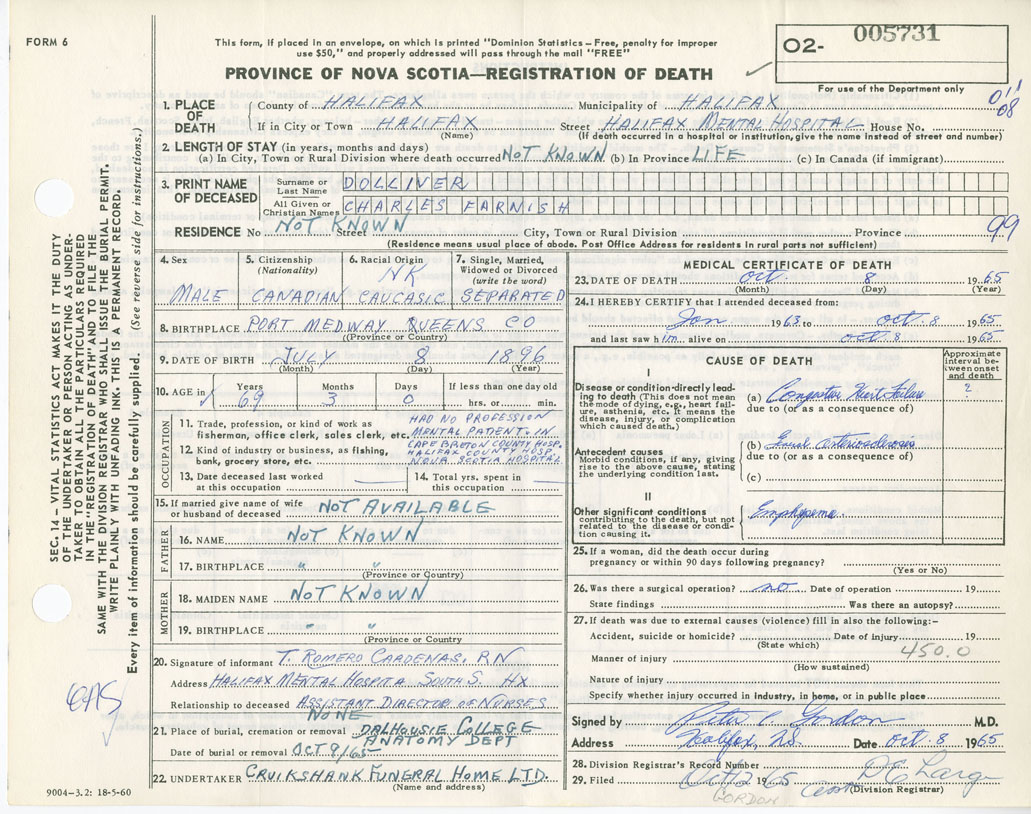 FORM 6
This form, if placed in an envelope, on which is printed "Dominion Statistics – Free, penalty for improper
use $50," and properly addressed will pass through the mail "FREE"
O2- 005731
PROVINCE OF NOVA SCOTIA—REGISTRATION OF DEATH
For use of the Department only
1. PLACE OF DEATH
County of HALIFAX Municipality of HALIFAX
If in City or Town HALIFAX Street HALIFAX MENTAL HOSPITAL House No.
(Name) (If death occurred in a hospital or institution, give the name instead of street and number)
2. LENGTH OF STAY (in years, months and days)
(a) In City, Town or Rural Division where death occurred NOT KNOWN (b) In Province LIFE (c) In Canada (if immigrant)
3. PRINT NAME OF DECEASED
Surname or Last Name DOLLIVER
All Given or Christian Names CHARLES FARNISH
RESIDENCE No NOT KNOWN Street City, Town or Rural Division Province
99
(Residence means usual place of abode. Post Office Address for residents in rural parts not sufficient)
4. Sex MALE
5. Citizenship (Nationality) CANADIAN
6. Racial Origin NK CAUCASIC
7. Single, Married, Widowed or Divorced (write the word) SEPARATED
8. BIRTHPLACE PORT MEDWAY QUEENS CO
(Province or Country)
9. DATE OF BIRTH JULY 8 1896
(Month) (Day) (Year)
10. AGE in Years 69 Months 3 Days 0 If less than one day old hrs. or min.
OCCUPATION
11. Trade, profession, or kind of work as fisherman, office clerk, sales clerk, etc. HAD NO PROFESSION
MENTAL PATIENT. IN
12. Kind of industry or business, as fishing, bank, grocery store, etc. CAPE BRETON COUNTY HOSP.
HALIFAX COUNTY HOSP.
NOVA SCOTIA HOSPITAL
13. Date deceased last worked at this occupation
14. Total yrs. spent in this occupation
15. If married give name of wife or husband of deceased NOT AVAILABLE
FATHER
16. NAME NOT KNOWN
17. BIRTHPLACE " "
(Province or Country)
MOTHER
18. MAIDEN NAME NOT KNOWN
19. BIRTHPLACE " "
(Province or Country)
20. Signature of informant T. ROMERO CARDENAS, RN
Address HALIFAX MENTAL HOSPITA SOUTH S. HX
Relationship to deceased ASSISTANT DIRECTOR OF NURSES
NONE
21. Place of burial, cremation or removal DALHOUSIE COLLEGE
ANATOMY DEPT
Date of burial or removal OCT 9/65
22. UNDERTAKER CRUIKSHANK FUNERAL HOME LTD.
(Name and address)
9004–3.2: 18-5-60
MEDICAL CERTIFICATE OF DEATH
23. DATE OF DEATH Oct. 8 1965
(Month) (Day) (Year)
24. I HEREBY CERTIFY that I attended deceased from:
Jan 1963 to Oct. 8 1965
and last saw him alive on Oct. 8 1965
CAUSE OF DEATH
Approximate interval between onset and death
I
Disease or condition directly leading to death (This does not mean the mode of dying, e.g., heart failure, asthenia, etc. It means the disease, injury, or complication which caused death.)
(a) Congestive Heart Failure ?
due to (or as a consequence of)
Antecedent causes
Morbid conditions, if any, giving rise to the above cause, stating the underlying condition last.
(b) Arteriosclerosis
due to (or as a consequence of)
(c)
II
Other significant conditions contributing to the death, but not related to the disease or condition causing it.
Emphysema
25. If a woman, did the death occur during
pregnancy or within 90 days following pregnancy?
(Yes or No)
26. Was there a surgical operation? no Date of operation 19
State findings Was there an autopsy?
27. If death was due to external causes (violence) fill in also the following:–
Accident, suicide or homicide? Date of injury 19
(State which) 450.0
Manner of injury
(How sustained)
Nature of injury
Specify whether injury occurred in industry, in home, or in public place
Signed by Peter C. Gordon M.D.
Address Halifax, N.S. Date Oct. 8 1965
28. Division Registrar's Record Number
29. Filed Oct 12 1965
(Division Registrar)
GORDON
SEC. 14 – VITAL STATISTICS ACT MAKES IT THE DUTY
OF THE UNDERTAKER OR PERSON ACTING AS UNDER-
TAKER TO OBTAIN ALL THE PARTICULARS REQUIRED
IN THE "REGISTRATION OF DEATH" AND TO FILE THE
SAME WITH THE DIVISION REGISTRAR WHO SHALL ISSUE THE BURIAL PERMIT.
WRITE PLAINLY WITH UNFADING INK. THIS IS A PERMANENT RECORD.
Every item of information should be carefully supplied. (See reverse side for instructions.)